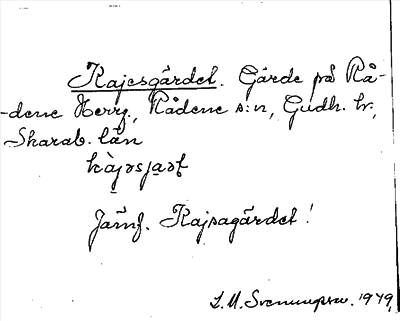 Kajesgärdet. Gärde på Rå-
-dene Herrg., Rådene s:n, Gudh. hr,
Skarab. län
Jämf. Kajsagärdet!
S. M. Svenungsson. 1949.